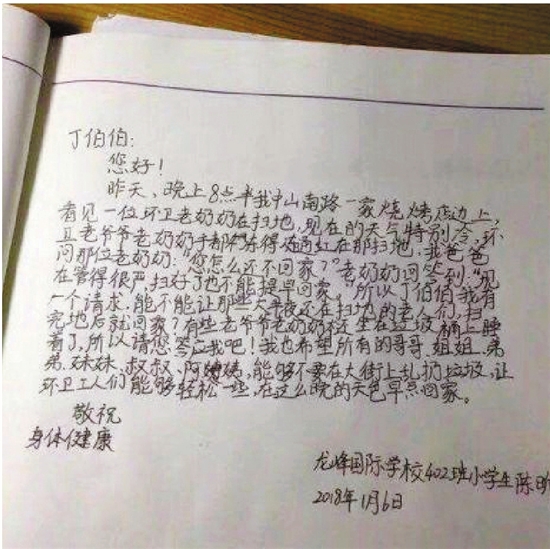 丁伯伯:
您好!
昨天,晚上8点半我中山南路一家烧烤店边上,
看见一位环卫老奶奶在扫地,现在的天气特别冷,环
卫老爷爷老奶奶手都冻得通红在那扫地,我爸爸
问那位老奶奶:"您怎么还不回家?"老奶奶回答到,"现
在管得很严,扫好了也不能提早回家。"所以丁伯伯我有
一个请求,能不能让那些大半夜还在扫地的老人们,扫
完地后就回家?有些老爷爷老奶奶还坐在垃圾桶上睡
着了,所以请您答应我吧!我也希望所有的哥哥、姐姐、弟
弟、妹妹、叔叔、阿姨,能够不要在大街上乱扔垃圾,让
环卫工人们能够轻松一些,在这么晚的天色早点回家。
敬祝
身体健康
龙峰国际学校402班小学生陈昕
2018年1月6日